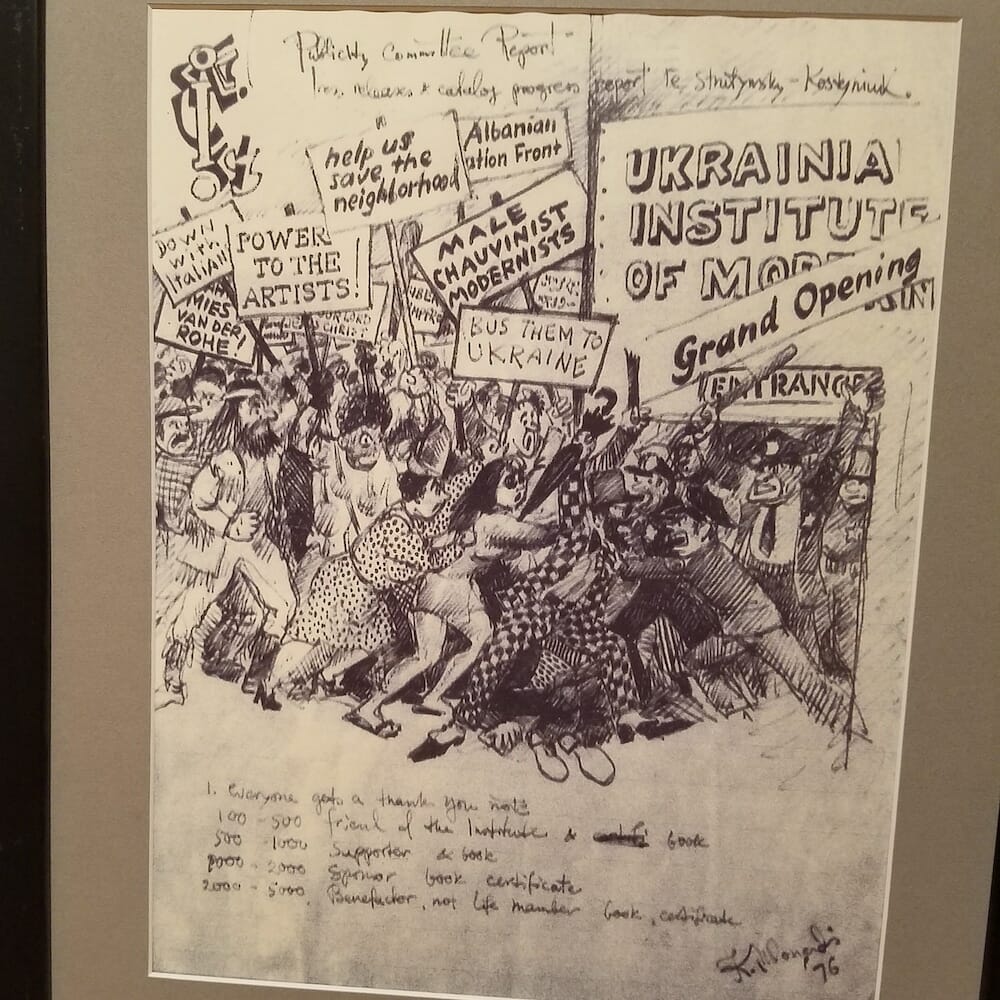 Publicity Committee Report
press releases & catalog progress report re Strutynsky - Kostyniuk.
help us
save the
neighborhood
Albanian
ation Front
UKRAINIA
INSTITUTE
OF MODE
Grand Opening
ENTRANCE
DOWN
WITH
Italian
POWER
TO THE
ARTISTS!
MALE
CHAUVINIST
MODERNISTS
MIES
VAN DER
ROHE!
CHRIST
BUS THEM TO
UKRAINE
1. everyone gets a thank you note
100 - 500 friend of the Institute & book
500 - 1000 Supporter & book
1000 - 2000 Sponsor book certificate
2000 - 5000, Benefactor, not life member book, certificate
76